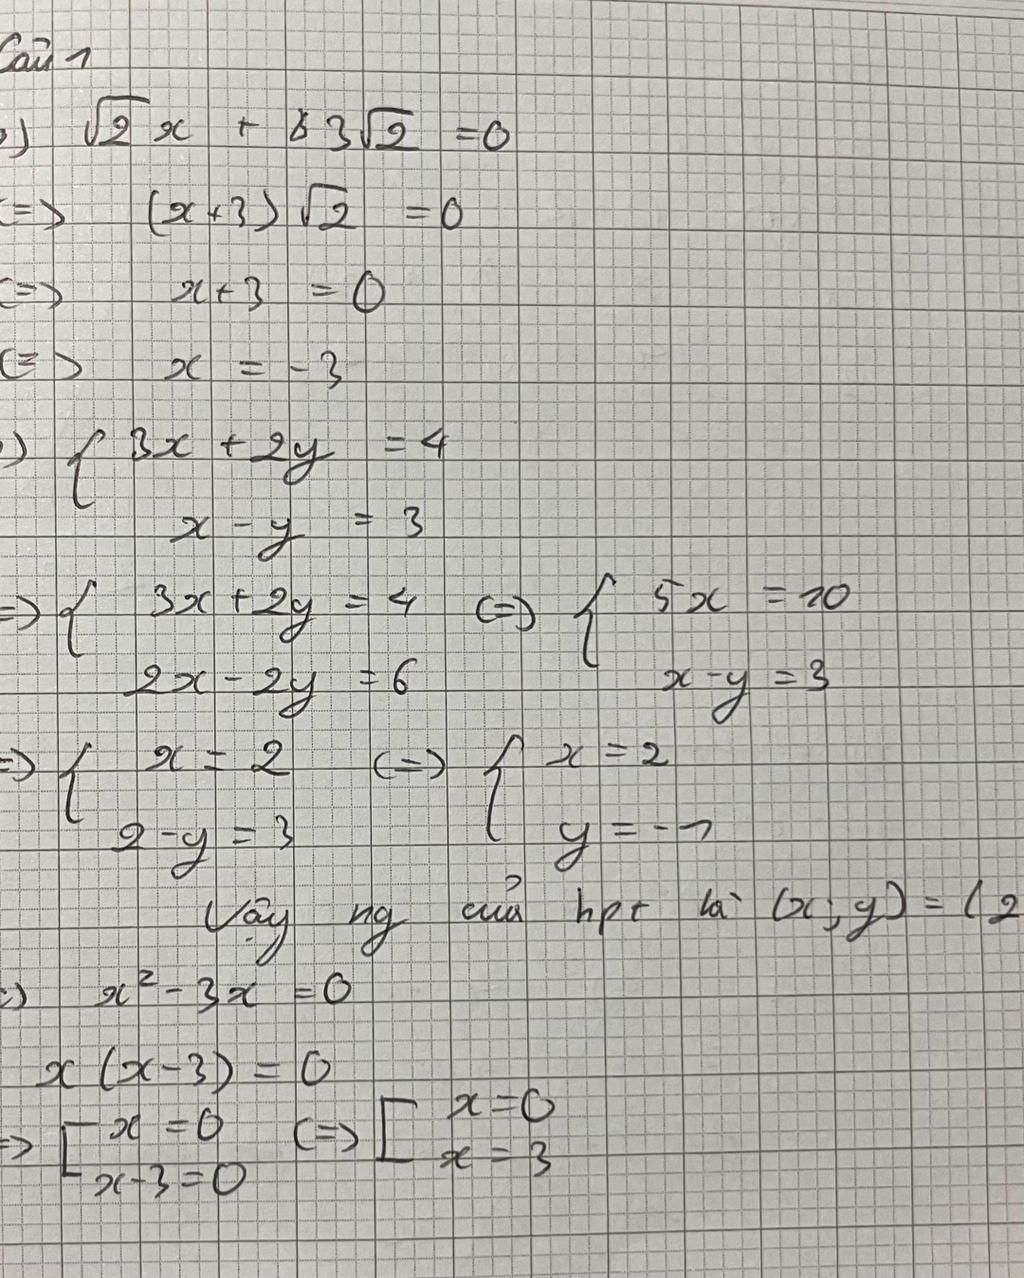 Câu 1
a) √2 x + 3√2 = 0
(=) (x+3) √2 = 0
(=) x+3 = 0
(=) x = -3
b) { 3x + 2y = 4
x - y = 3
(=) { 3x + 2y = 4 (=) { 5x = 10
2x - 2y = 6 x - y = 3
(=) { x = 2 (=) { x = 2
2 - y = 3 y = -1
Vậy ng của hpt là (x; y) = (2
c) x² - 3x = 0
x (x - 3) = 0
=) [ x = 0 (=) [ x = 0
x - 3 = 0 x = 3